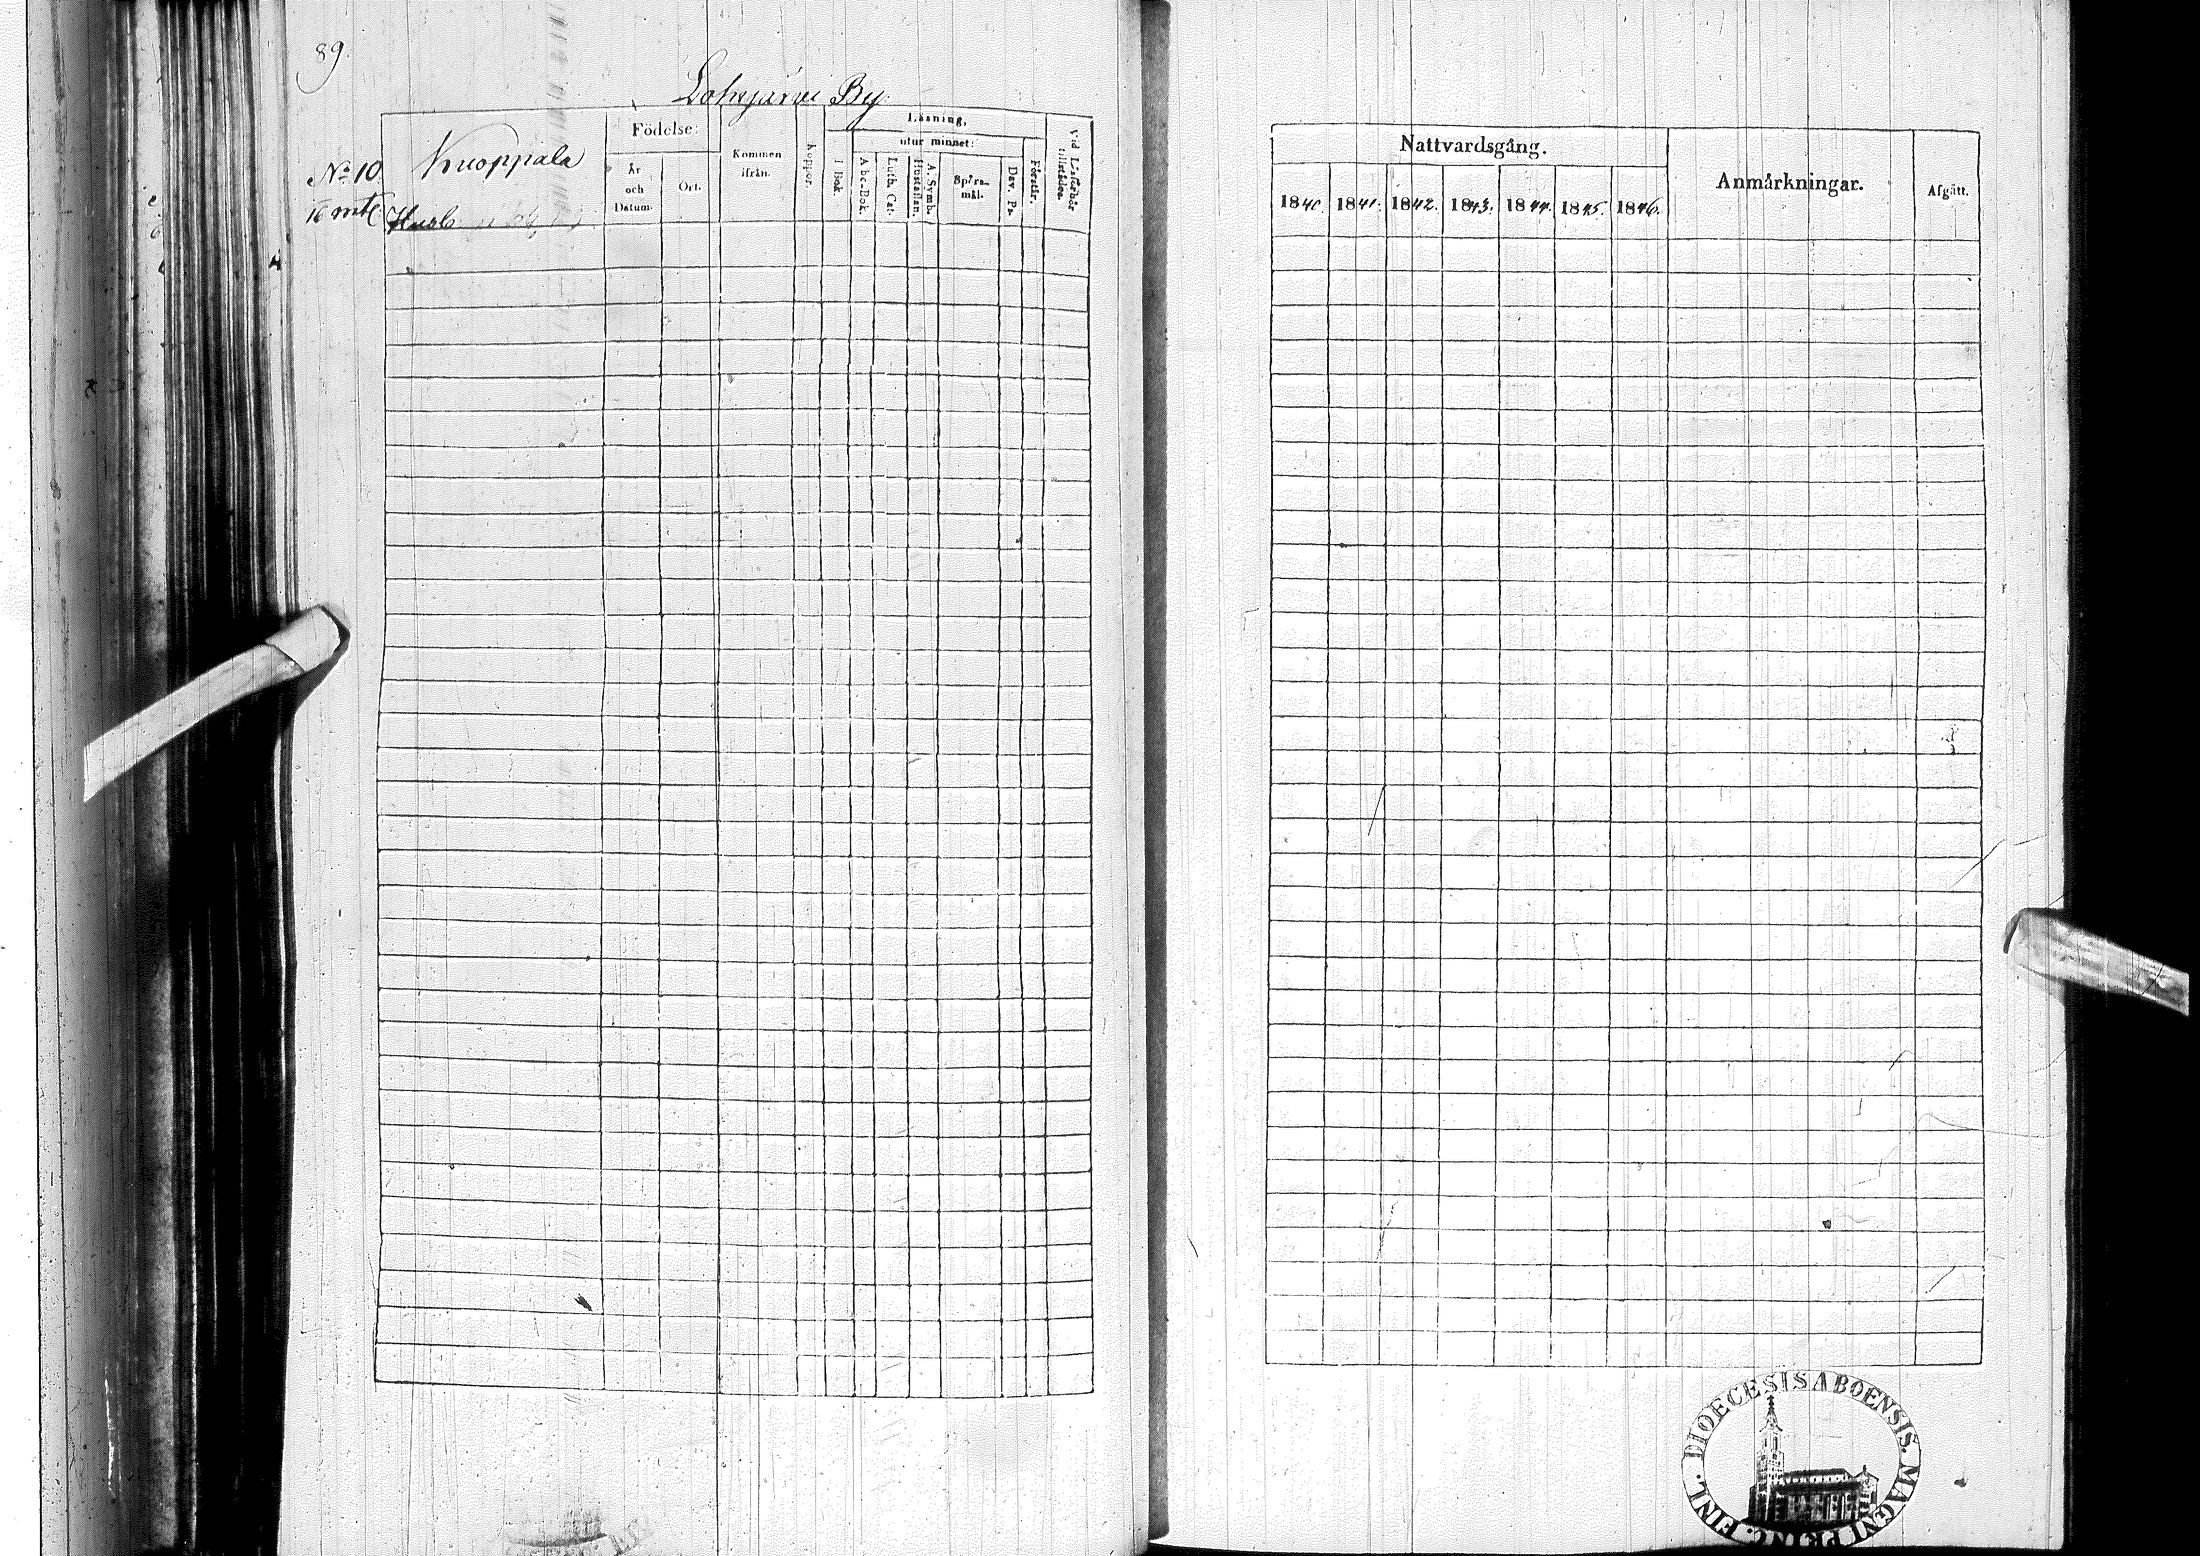 89
Lohijärvi By.
Nº 10
Kuoppala
Födelse:
År och Datum.
Ort.
Kommen ifrån.
Koppor.
Läsning,
I Bok.
utur minnet:
Abc-Bok.
Luth. Cat.
A. Symb. Hustaflan.
Spörs-mål.
Dav. Ps.
Förstår.
Vid Läseförhör tillstädes.
16 mtl
Nattvardsgång.
1840. 1841. 1842. 1843. 1844. 1845. 1846.
Anmärkningar.
Afgått.
DIOECESIS ABOENSIS. MAGNI PRINC. FINL.